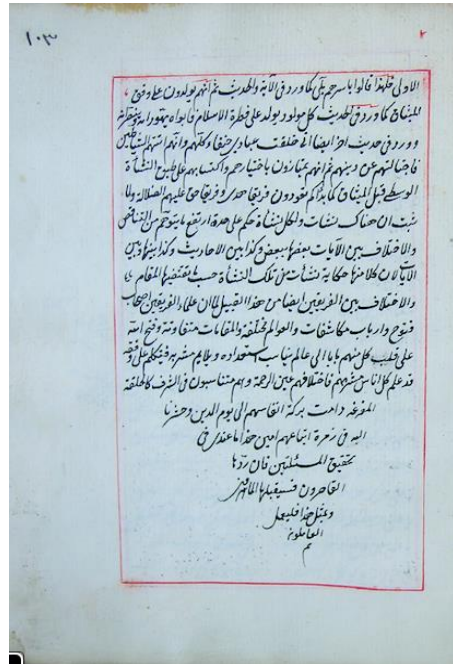 ١٠٣
الاولى فلهذا قالوا باسرهم بلى كما ورد فى الآية والحديث ثم انهم يولدون على وفق
الميثاق كما ورد فى الحديث كل مولود يولد على فطرة الاسلام فابواه يهودانه وينصرانه
وورد فى حديث اخر ايضا انى خلقت عبادى حنفا وكلهم وانهم اتتهم الشياطين
فاجتالتهم عن دينهم ثم انهم يمتازون باختيارهم واكتسابهم على طبق النشأة
الوسطى قبل الميثاق كما بدأكم تعودون فريقا هدى وفريقا حق عليهم الضلالة ولما
ثبت ان هناك نشآت ولكل نشأة حكم على حدة ارتفع ما يتوهم من التناقض
والاختلاف بين الآيات بعضها ببعض وكذا بين الاحاديث وكذا بينها وبين
الآيات لان كلا منها حكاية نشأت من تلك النشأة حسب ما يقتضيها المقام
والاختلاف بين الفريقين ايضا من هذا القبيل لما ان علماء الفريقين اصحاب
فتوح وارباب مكاشفات والعوالم مختلفة والمقامات متفاوتة وفتح الله
على قلب كل منهم بابا الى عالم يناسب استعداده ويلايم مشربه فيتكلم على وفقه
قد علم كل اناس مشربهم فاختلافهم عين الرحمة وهم متناسبون فى الشرف كالحلقة
المفرغة دامت بركة انفاسهم الى يوم الدين وحشرنا
الله فى زمرة اتباعهم امين هذا ما عندى فى
تحقيق المسئلتين فان ردها
القاصرون فسيقبلها الماهرون
وبمثل هذا فليعمل
العاملون
تم